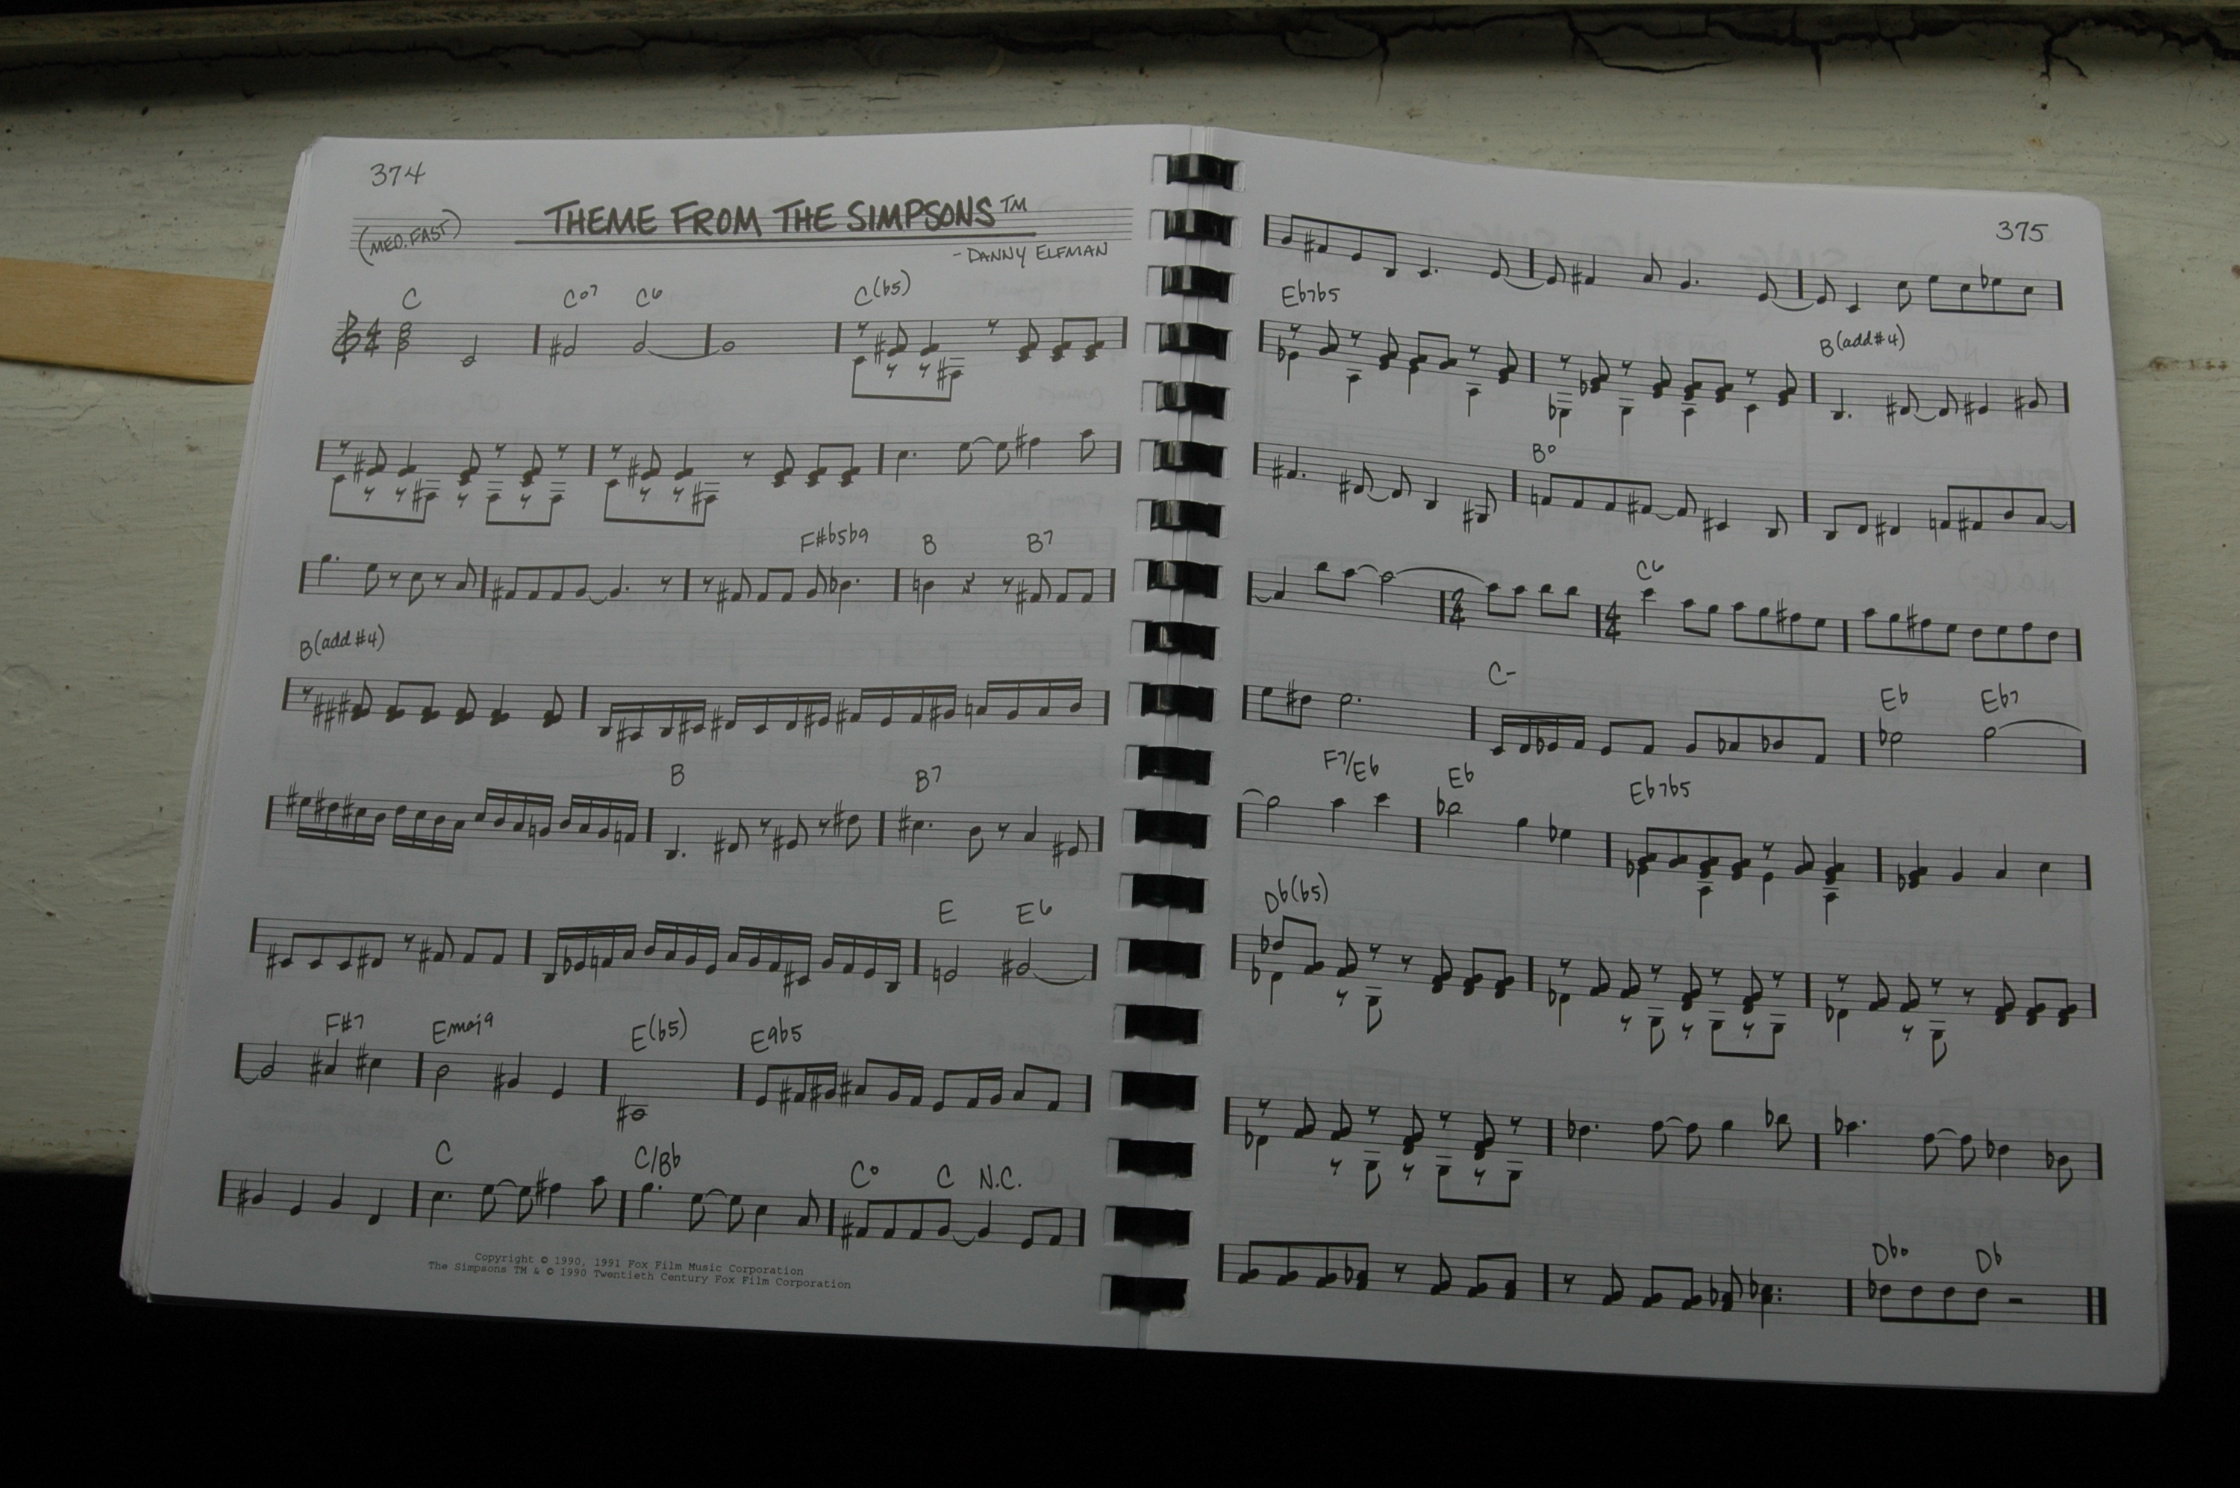 374
THEME FROM THE SIMPSONS™
(MED. FAST)
- DANNY ELFMAN
C Co7 C6 C(b5)
4 4
F#b5b9 B B7
B(add#4)
B B7
E E6
F#7 Emaj9 E(b5) E9b5
C C/Bb Co C N.C.
Copyright © 1990, 1991 Fox Film Music Corporation
The Simpsons TM & © 1990 Twentieth Century Fox Film Corporation
375
Eb7b5 B(add#4)
Bo
C6
2 4 4 4
C- Eb Eb7
F7/Eb Eb Eb7b5
Db(b5)
Dbo Db